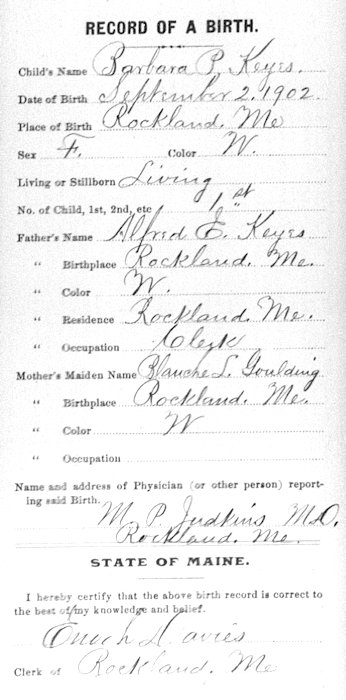 RECORD OF A BIRTH.
Child's Name Barbara P. Keyes.
Date of Birth September 2, 1902.
Place of Birth Rockland, Me
Sex F. Color W.
Living or Stillborn Living
No. of Child, 1st, 2nd, etc 1st
Father's Name Alfred E. Keyes
" Birthplace Rockland, Me.
" Color W.
" Residence Rockland, Me.
" Occupation Clerk
Mother's Maiden Name Blanche L. Goulding
" Birthplace Rockland, Me.
" Color W
" Occupation
Name and address of Physician (or other person) report-
ing said Birth.
M. P. Judkins M.D.
Rockland, Me.
STATE OF MAINE.
I hereby certify that the above birth record is correct to
the best of my knowledge and belief.
Enoch Davies
Clerk of Rockland, Me